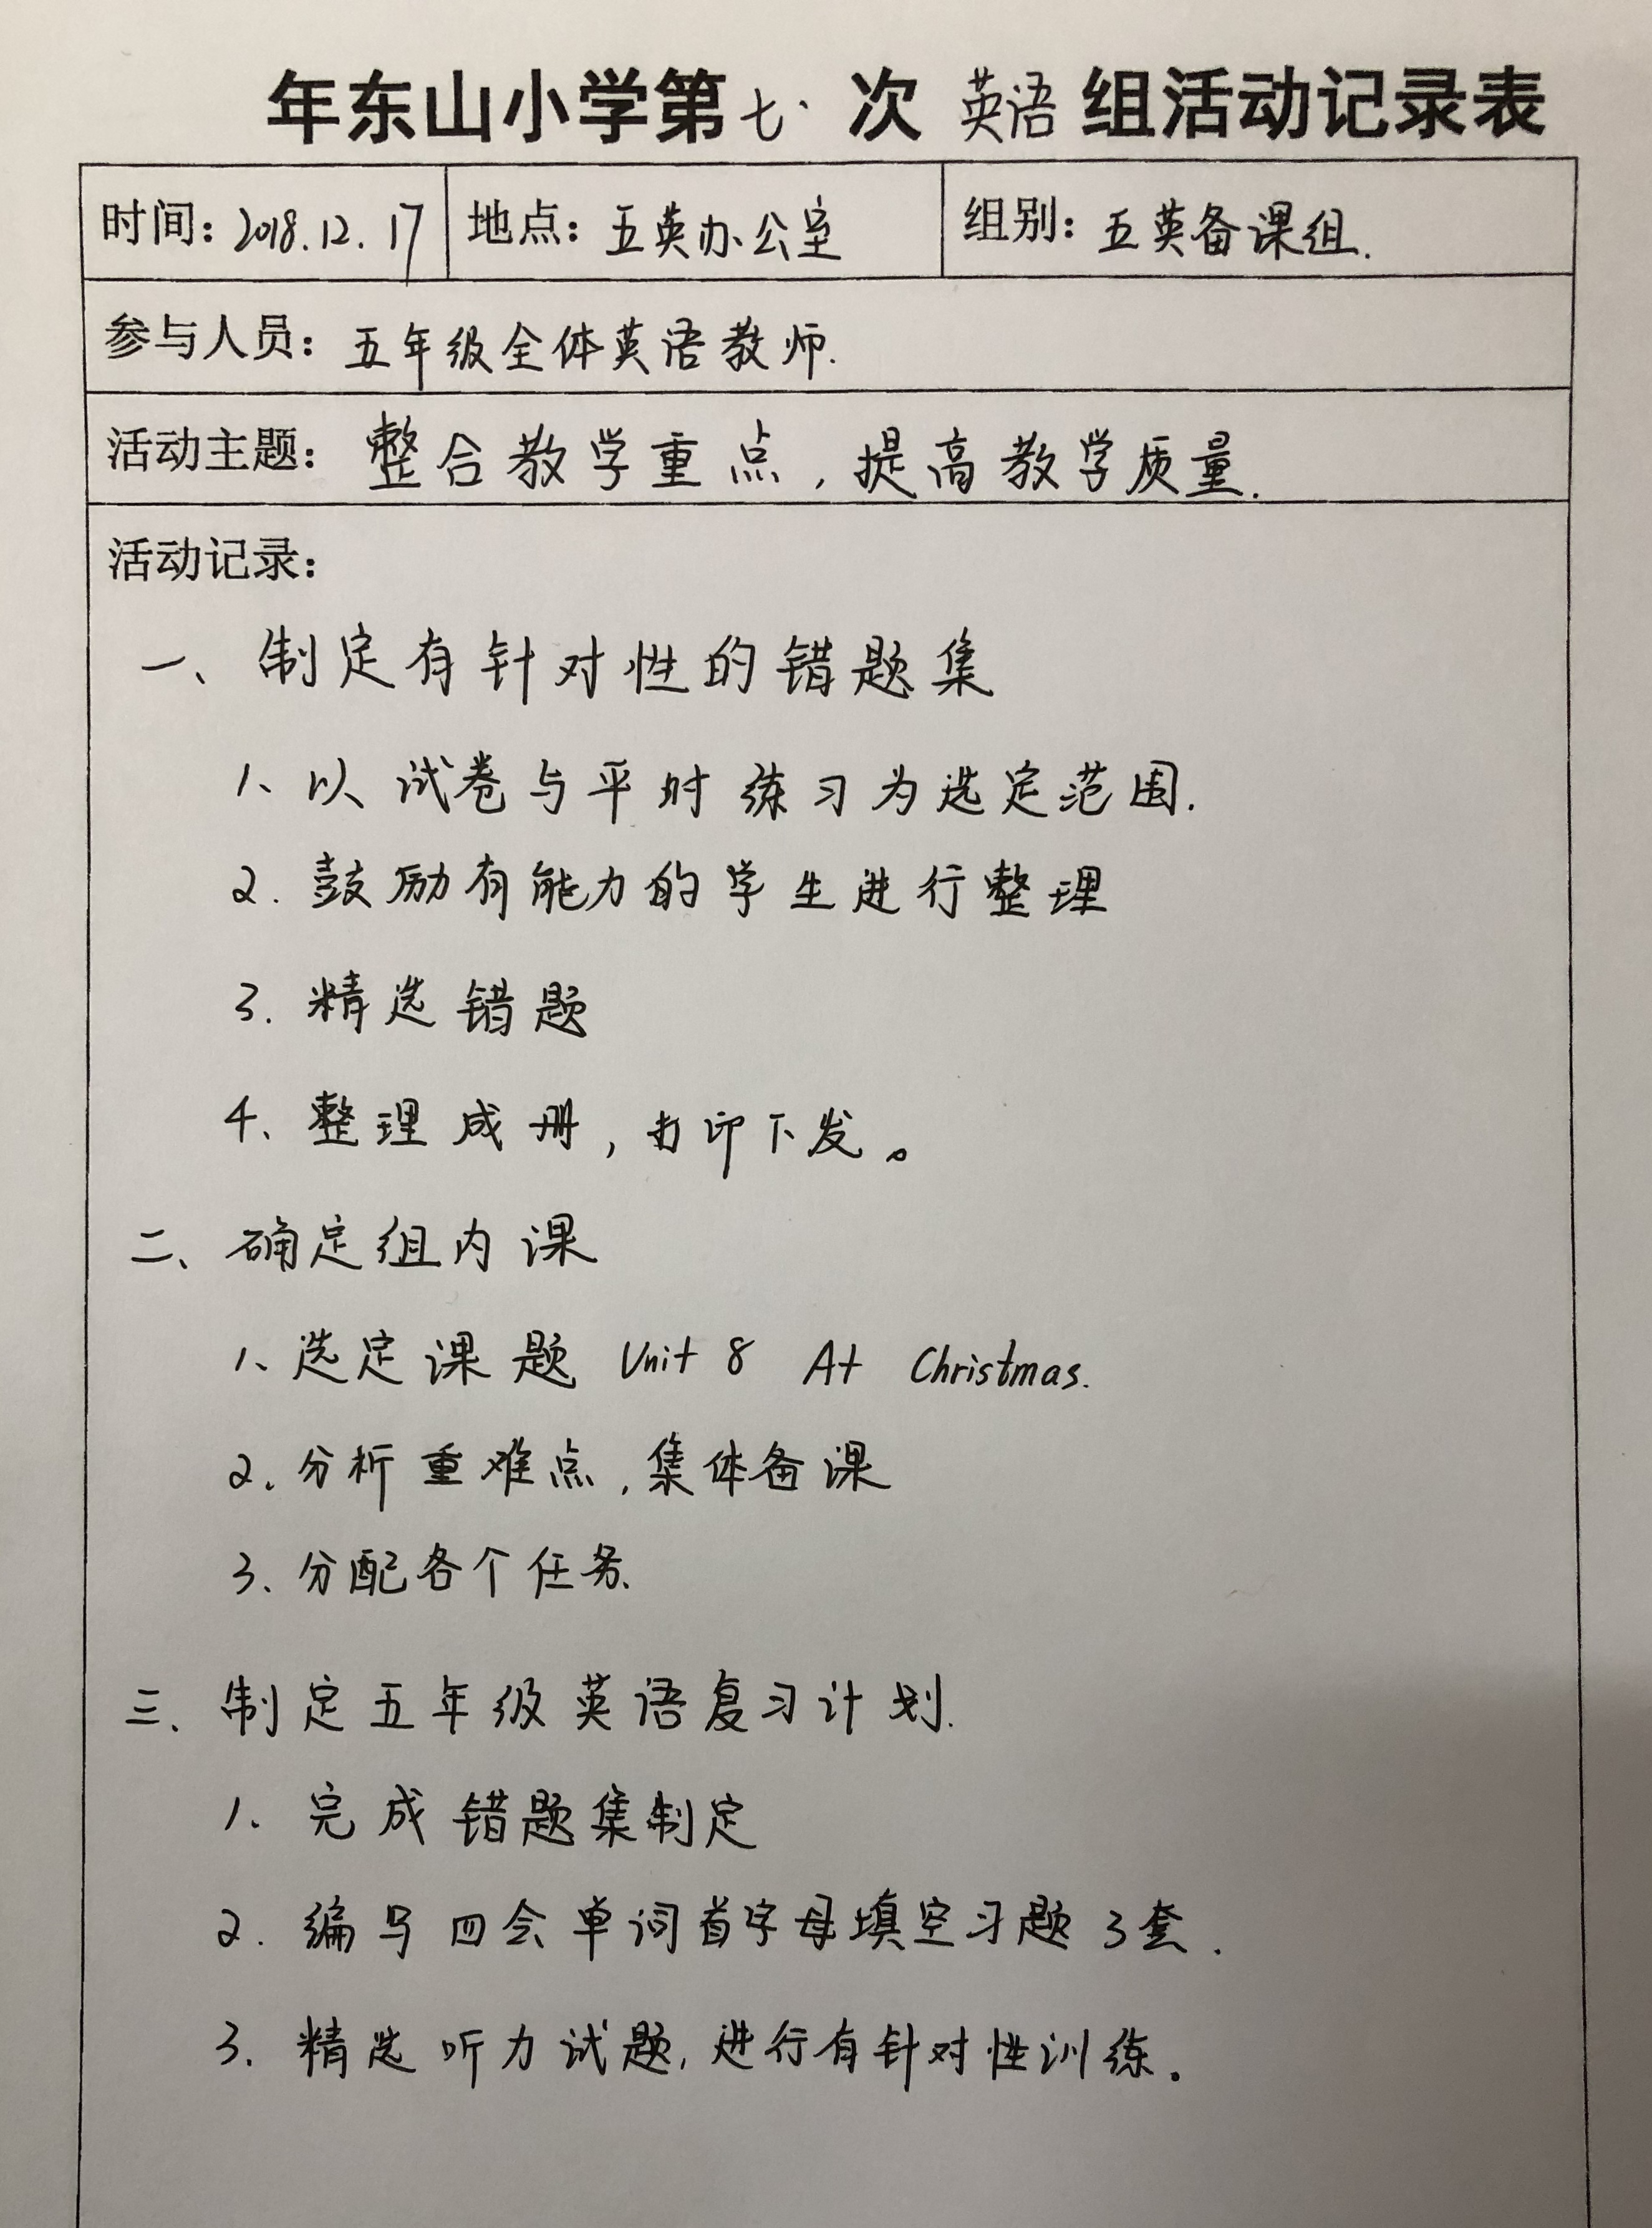 年东山小学第七次 英语 组活动记录表
时间：2018.12.17 地点：五英办公室 组别：五英备课组.
参与人员：五年级全体英语教师.
活动主题：整合教学重点，提高教学质量.
活动记录：
一、制定有针对性的错题集
1、以试卷与平时练习为选定范围.
2. 鼓励有能力的学生进行整理
3. 精选错题
4、整理成册，打印下发。
二、确定组内课
1、选定课题 Unit 8 At Christmas.
2. 分析重难点，集体备课
3、分配各个任务.
三、制定五年级英语复习计划.
1、完成错题集制定
2. 编写四会单词首字母填空习题3套.
3. 精选听力试题，进行有针对性训练。